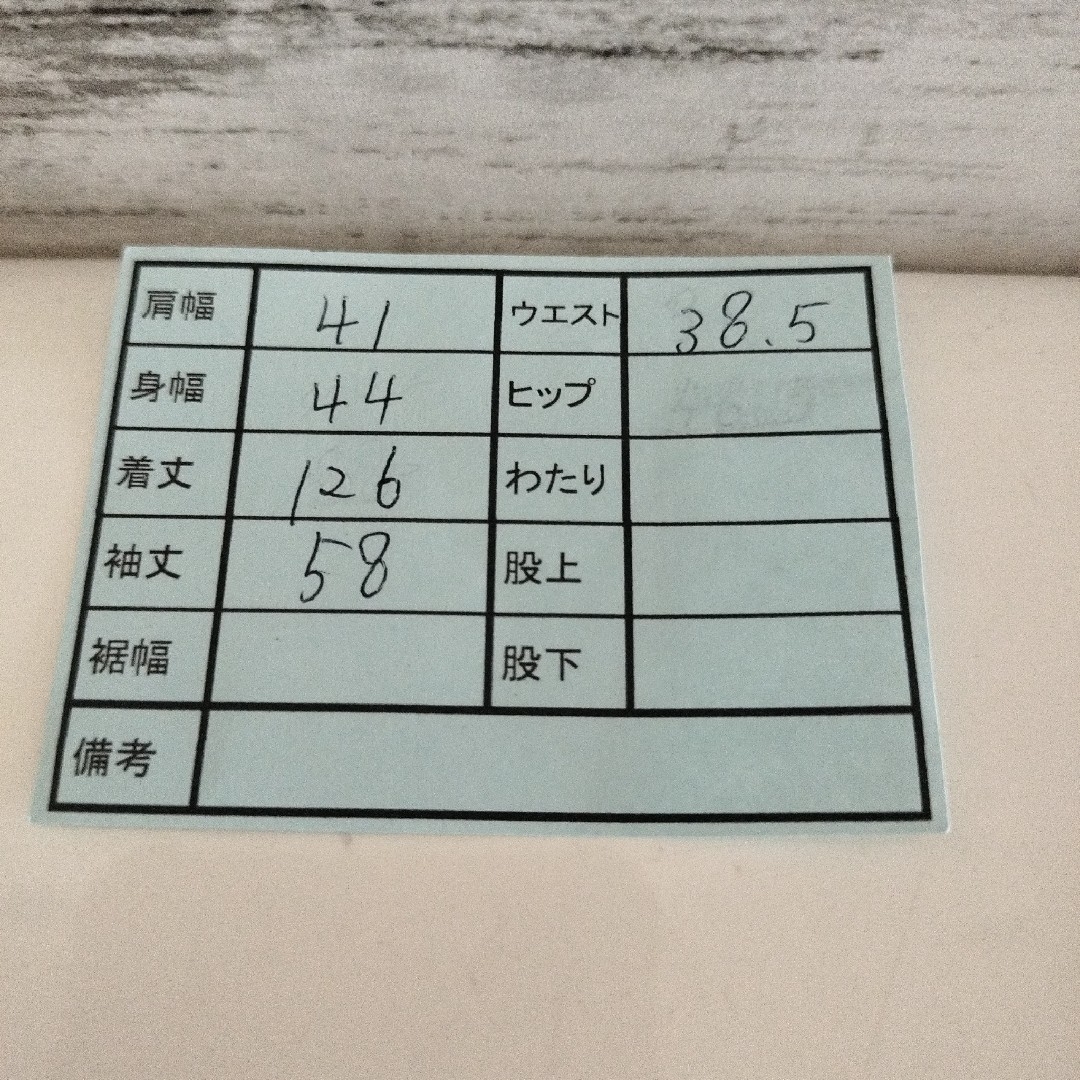 肩幅 41 ウエスト 38.5
身幅 44 ヒップ
着丈 126 わたり
袖丈 58 股上
裾幅 股下
備考